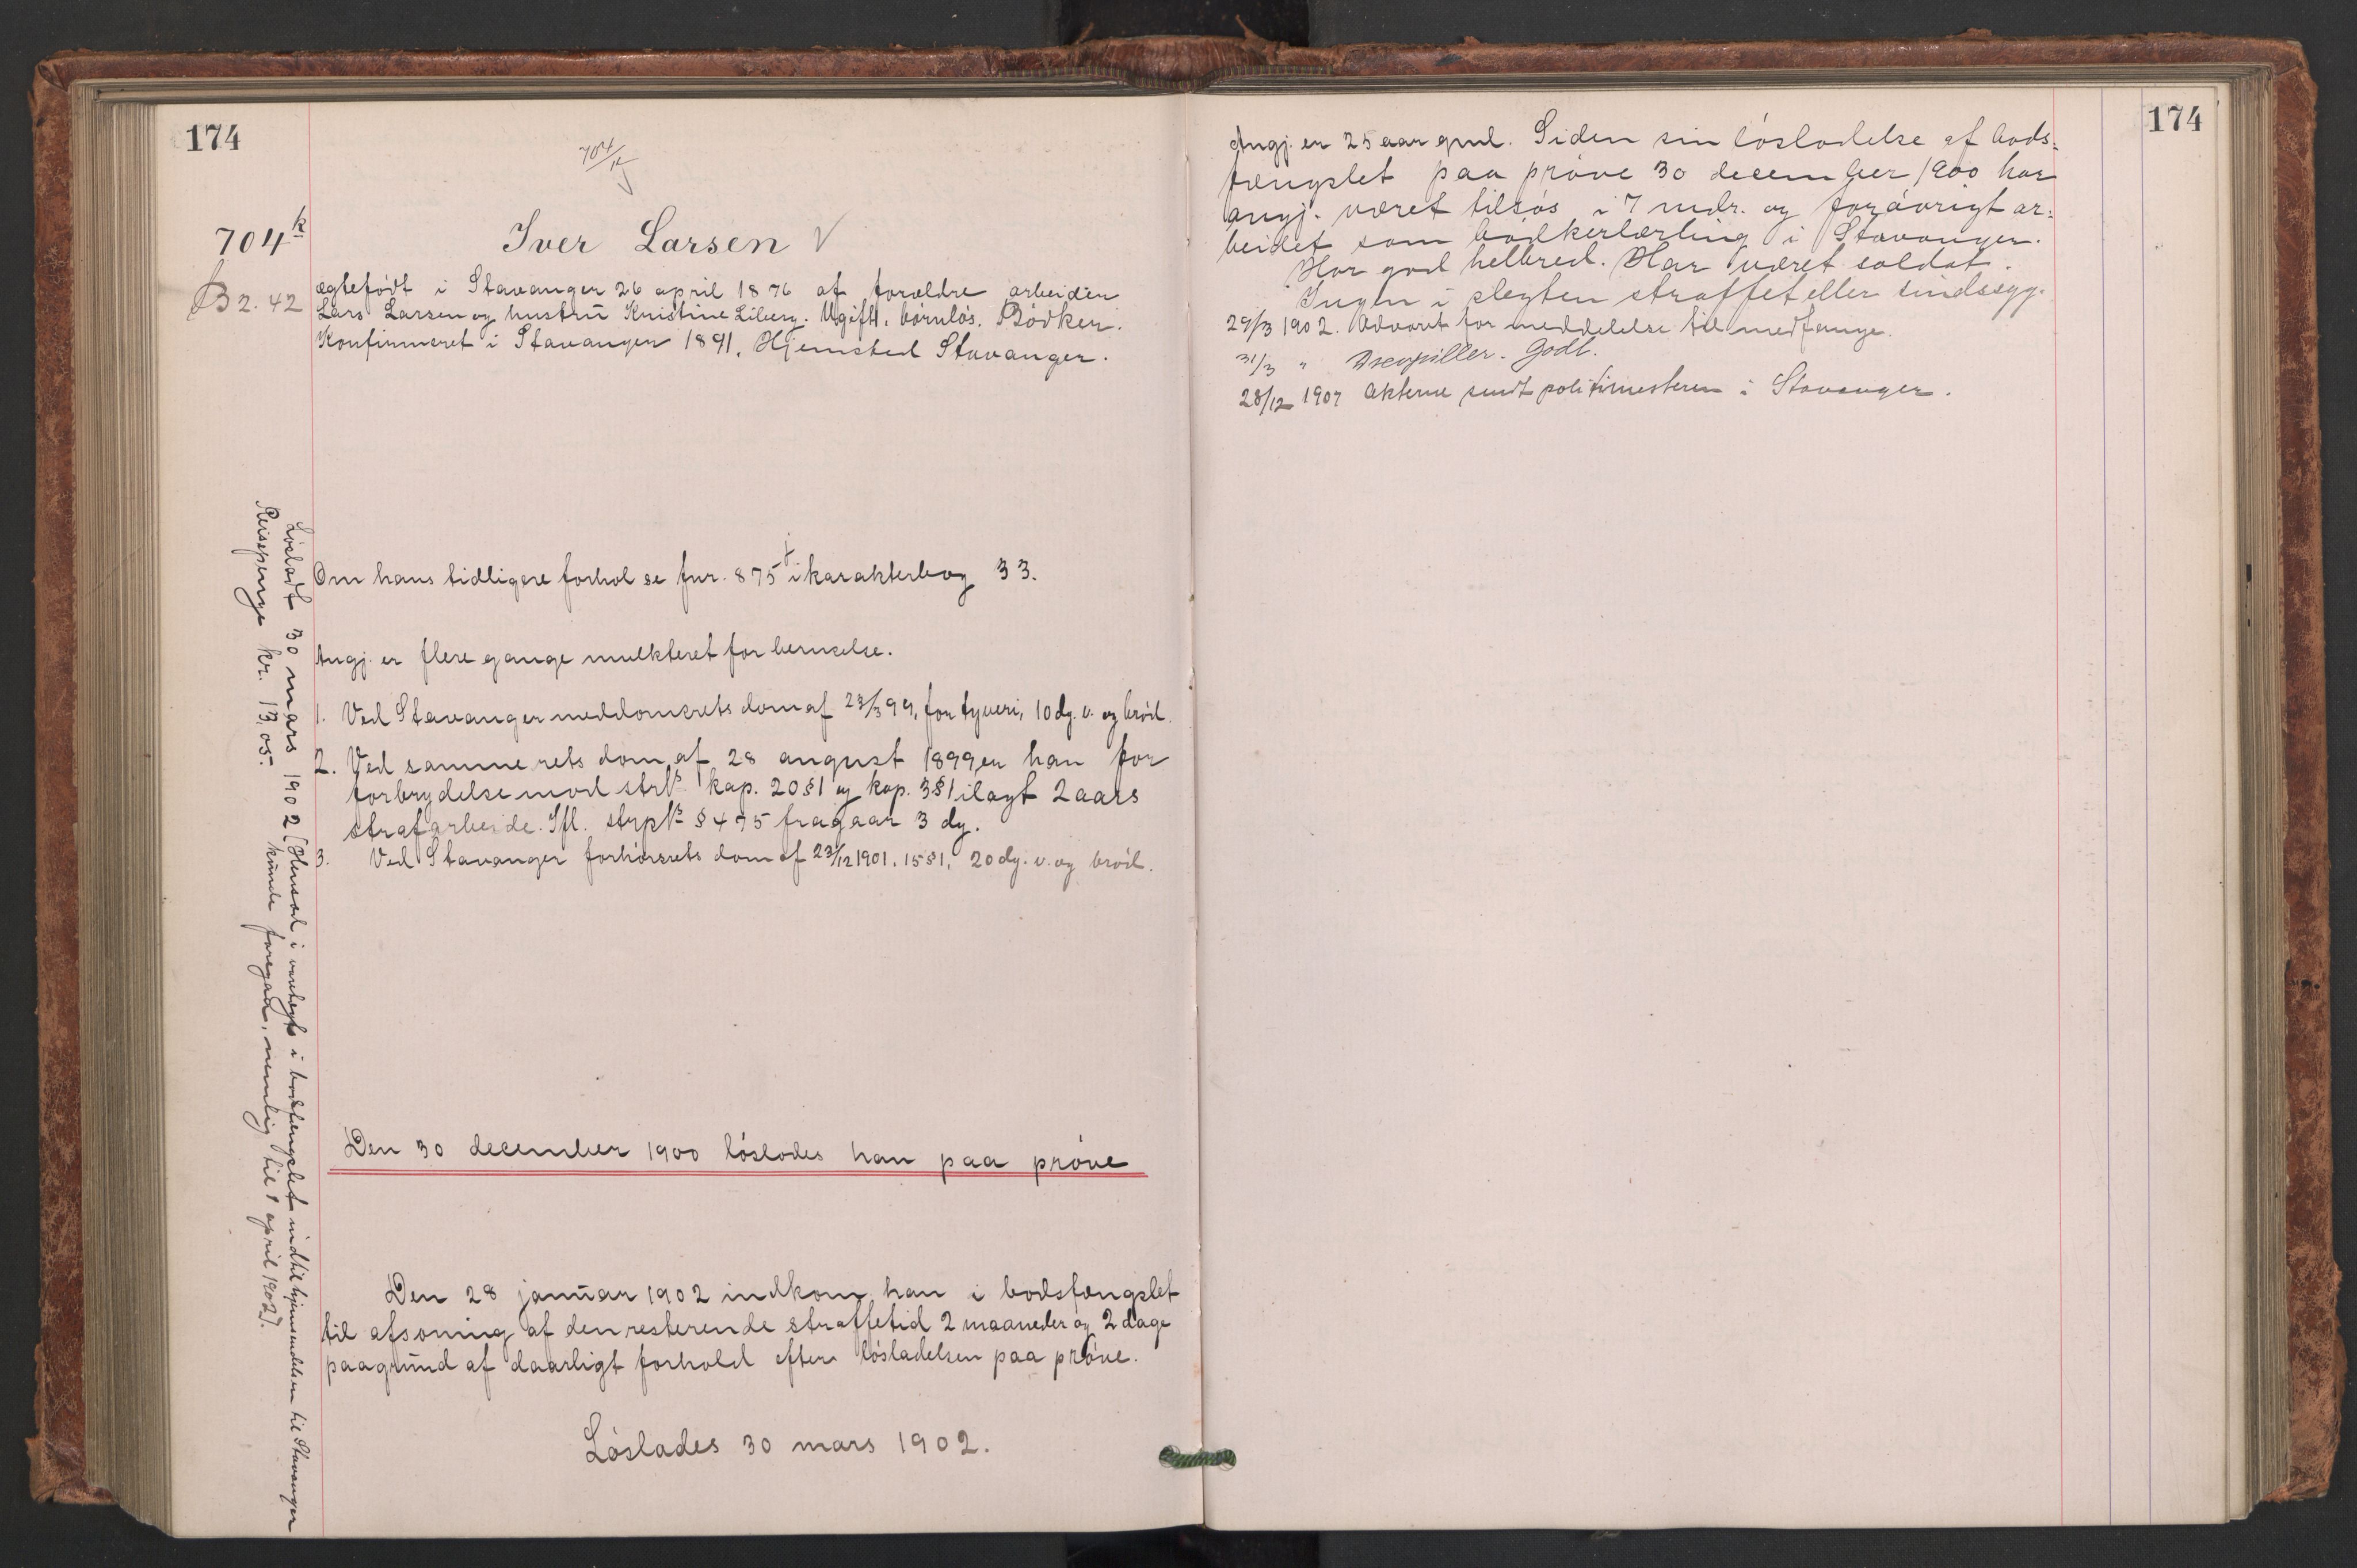 174
704/k
704k
Iver Larsen V
B 2. 42
ægtefödt i Stavanger 26 april 1876 af forældre arbeider
Lars Larsen og hustru Kristine Liberg. Ugift, börnlös. Bödker.
Konfirmeret i Stavanger 1891. Hjemsted Stavanger.
Om hans tidligere forhol se fnr. 875 i karakterbog 33.
Angj. er flere gange mulkteret for beruselse.
1. Ved Stavanger meddomsrets dom af 23/3 99, for tyveri, 10 dg. v. og bröd.
2. Ved samme rets dom af 28 august 1899 er han for
forbrydelse mod strl. kap. 20 § 1 og kap. 3 § 1 ilagt 2 aars
strafarbeide. Ifl. strpl. § 475 fragaar 3 dg.
3. Ved Stavanger forhörsrets dom af 23/12 1901, 15 § 1, 20 dg. v. og bröd.
Den 30 december 1900 löslodes han paa pröve
Den 28 januar 1902 indkom han i bodsfængslet
til afsoning af den resterende straffetid 2 maaneder og 2 dage
paagrund af daarligt forhold efter lösladelsen paa pröve.
Löslades 30 mars 1902.
Löslodt 30 mars 1902 [Hensad i varetegt i bodsfængslet indtil hjemsendelsen til Stavanger
kunde foregaa, nemlig til 1 april 1902].
Reisepenge kr. 13,05.
174
Angj. er 25 aar gml. Siden sin lösladelse af bods-
fængslet paa pröve 30 december 1900 har
angj. været tilsös i 7 mdr. og forövrigt ar-
beidet som bödkerlærling i Stavanger.
Har god helbred. Har været soldat.
Ingen i slegten straffet eller sindssyg.
29/3 1902. Advaret for meddelelse til medfange.
31/3 " Godt.
28/12 1907 Akterne sendt politimesteren i Stavanger.